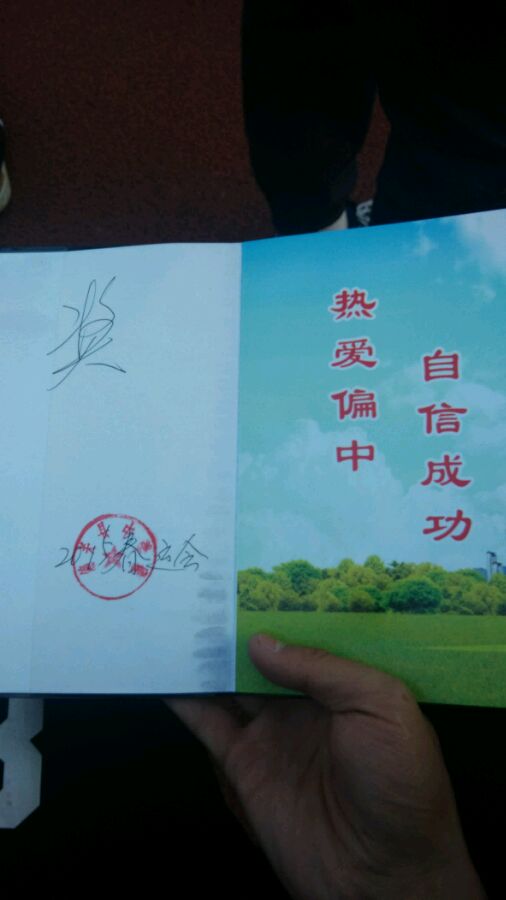 奖
2015春运会
热爱偏中
自信成功